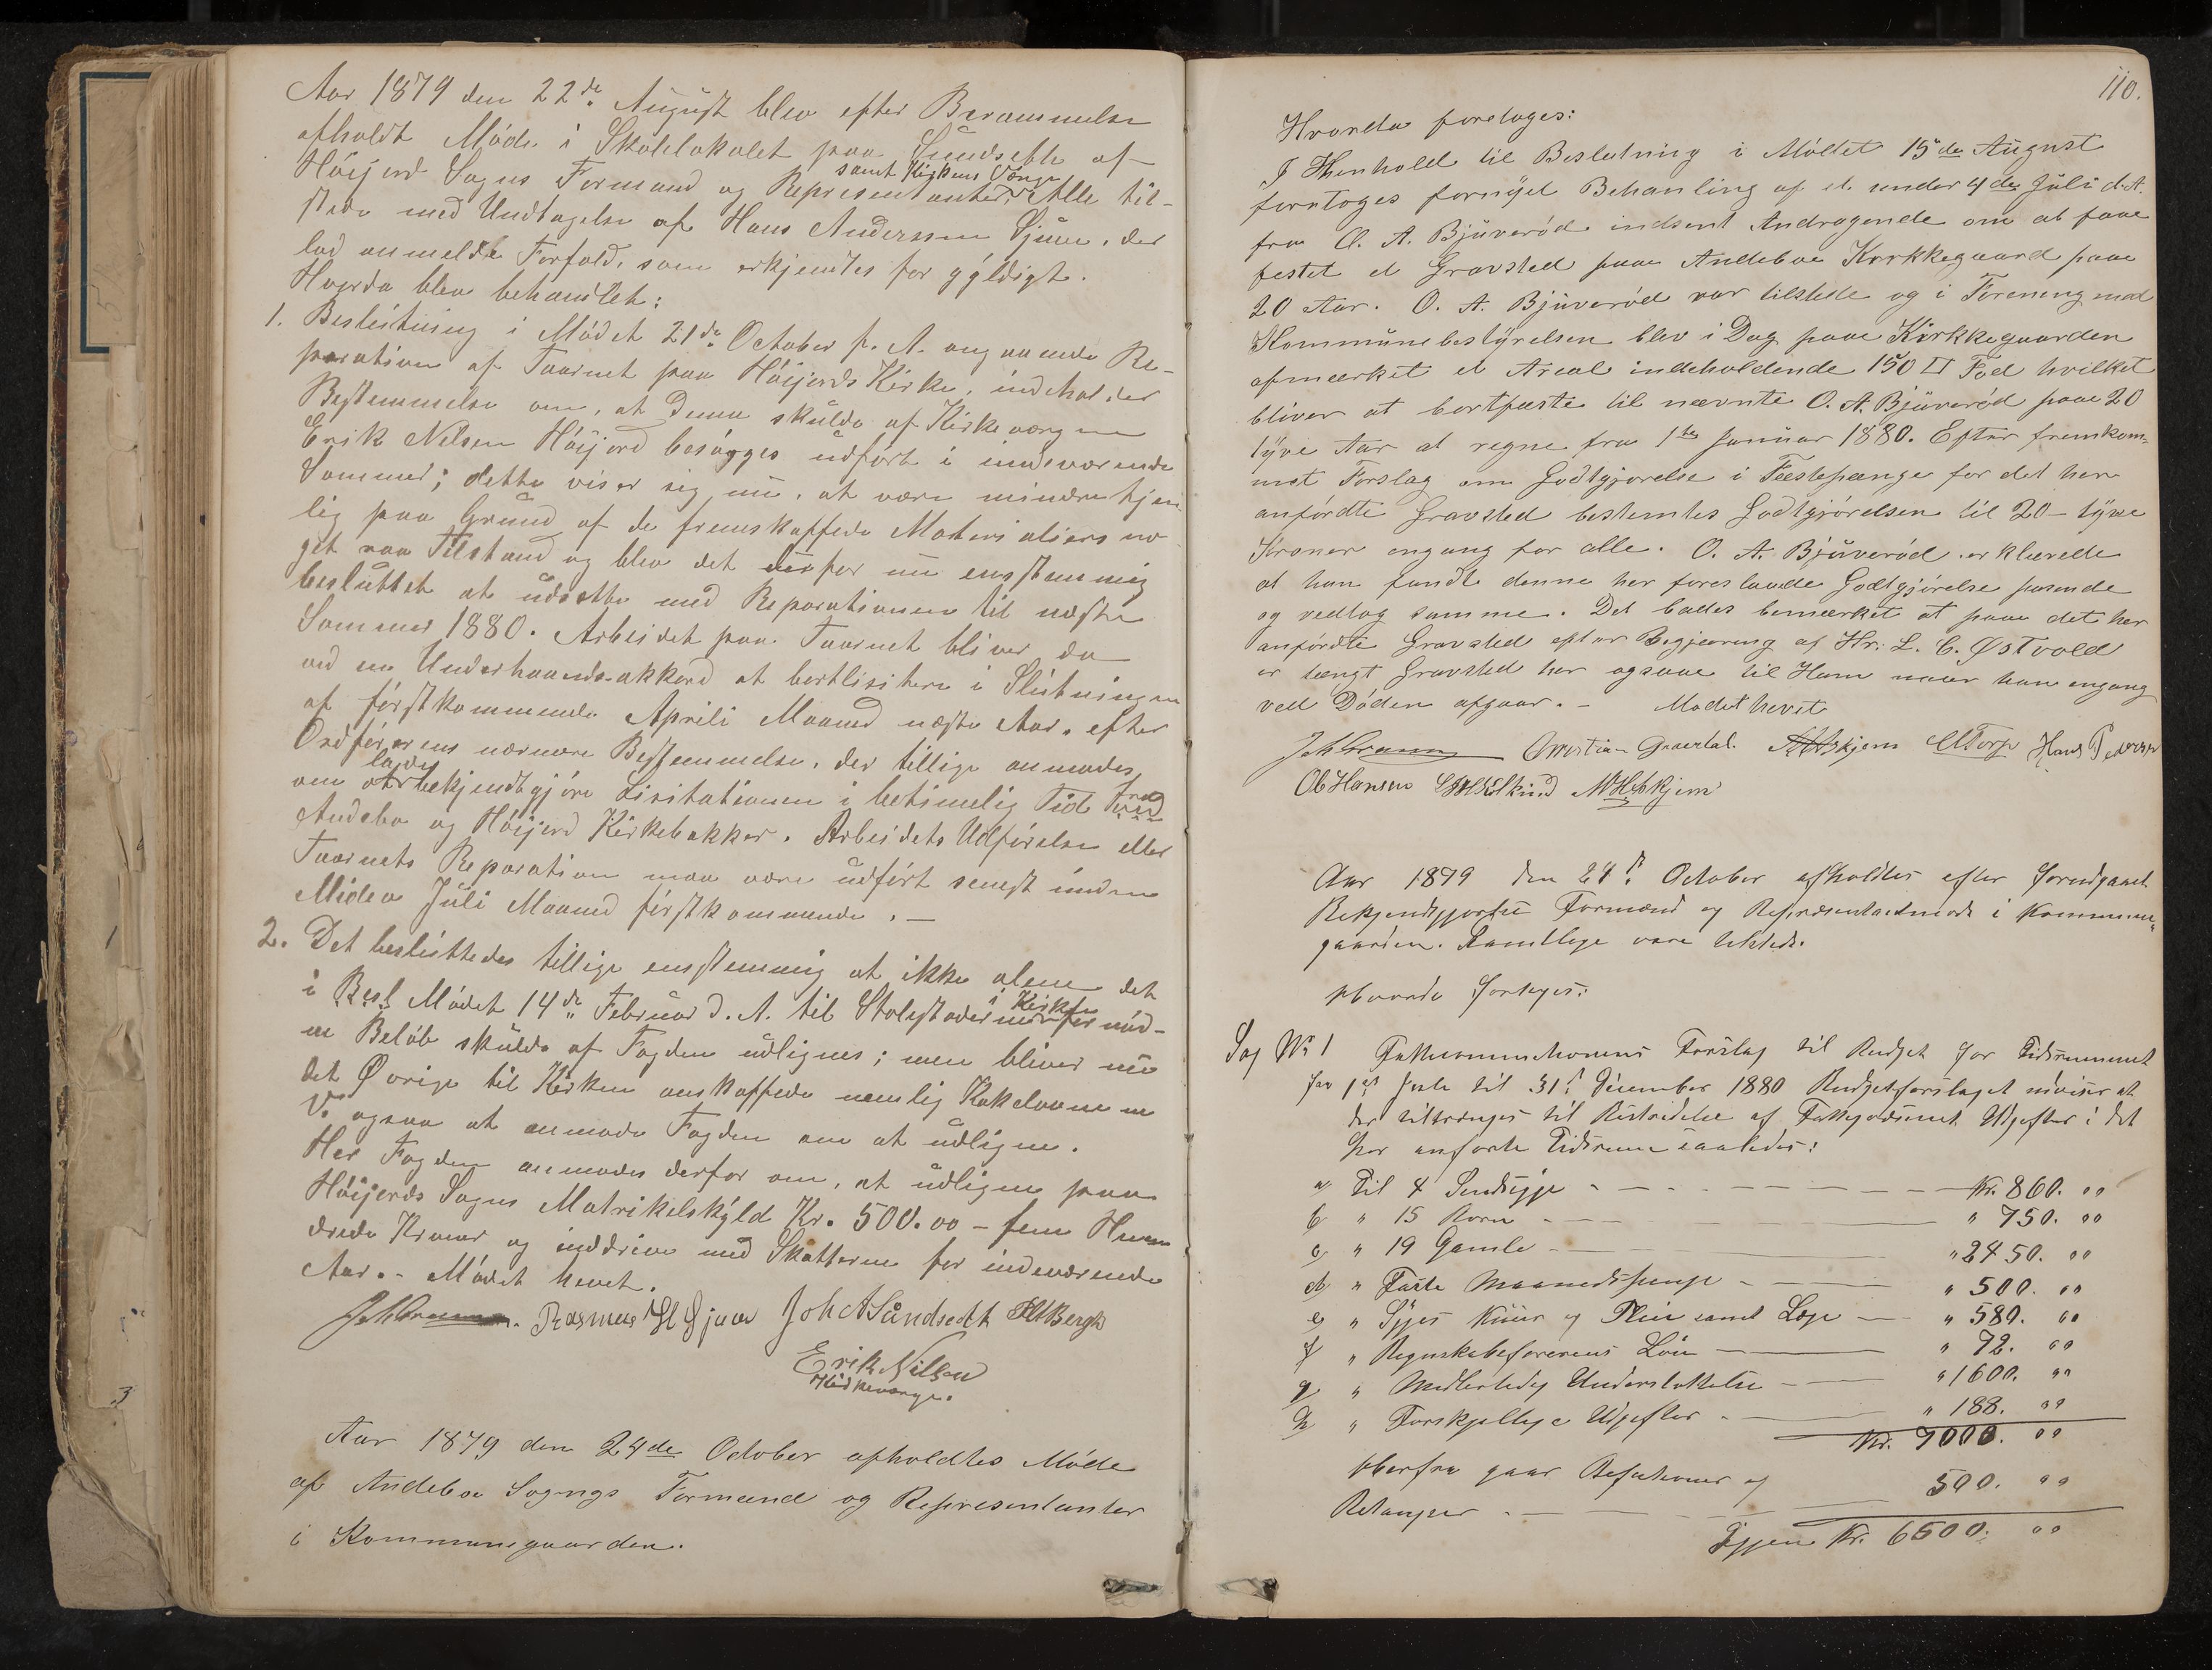 Aar 1879 den 22de August blev efter Berammelse
afholdt Møde i Skolelokalet paa Sundsette af
samt Kirkens Værge
Høijord Sogns Formænd og Repræsentanter Alle til-
stede med Undtagelse af Hans Anderssen Gjuve, der
lod anmeldte Forfald, som erkjendtes for gyldigt.
Hvorda blev behandlet:
1. Beslutning i Mødet 21de October f. A. angaaende Re-
paration af Taarnet paa Høijords Kirke, indeholder
Bestemmelse om, at Denne skulde af Kirkeværgen
Erik Nilsen Høijord besørges udført i indeværende
Sommer; dette viser sig nu, at være mindre tjen
lig paa Grund af de fremskaffede Materialiers no
get raa Tilstand og blev det derfor nu enstemmig
besluttet at udsætte med Reparationen til næste
Sommer 1880. Arbeidet paa Taarnet bliver da
ved en Underhaandsakkord at bortlisitere i Slutningen
af førstkommende Aprili Maaned næste Aar, efter
Ordførerens nærmere Bestemmelse, der tillige anmodes
lade
om at bekjendtgjøre Lisitationen i betimelig Tid fra
Andebo og Høijord Kirkebakker. Arbeidets Udførelse eller
Taarnets Reparation maa være udført senest inden
Midten Juli Maaned førstkommende. —
2. Det besluttedes tillige enstemmig at ikke alene det
i Best Mødet 14de Februar d. A. til Stolestader i Kirken fornød-
ne Beløb skulde af Fogden udlignes; men bliver nu
det Øvrige til Kirken anskaffede nemlig Kakelovnene
V. ogsaa at anmode Fogden om at udligne.
Her Fogden anmodes derfor om, at udligne paa
Høijords Sogns Matrikelskyld Kr. 500.00 – fem Hun
drede Kroner og inddrive med Skatterne for indeværende
Aar. – Mødet hævet.
Rasmus H Gjuve Joh A Sundsedt HBergh
Erik Nilsen
Kirkeværge.
Aar 1879 den 24de October afholdtes Møde
af Andebo Sogngs Formænd og Representanter
i Kommunegaarden.
110.
Hvorda foretoges:
I Henhold til Beslutning i Mødet 15de August
foretoges fornyet Behanling af et under 4de Juli d.A.
fra O. A. Bjuverød indsent Andragende om at faae
festet et Gravsted paae Andeboe Kirkkegaard paae
20 Aar. O. A. Bjuverød var tilstede og i Forening med
Kommunebestyrelsen blev i Dag paae Kirkkegaarden
afmærket et Areal indeholdende 150 □ Fod hvilket
bliver at bortfæste til nævnte O. A. Bjuverød paae 20
tyve Aar at regne fra 1ste Januar 1880. Efter fremkom-
met Forslag om Godtgjørelse i Fæstepænge for det her
anførdte Gravsted bestemtes Godtgjørelsen til 20 – tyve
Kroner engang for alle. O. A. Bjuverød erklærede
at han fandt denne her foreslaade Godtgjørelse pasende
og vedtog samme. Det bades bemærket at paae det her
anførdte Gravsted efter Begjæring af Hr. L. C. Østvold
er tængt Gravsted her ogsaae til Ham naar han engang
ved Døden afgaar. – Mødet hevet
Christian Gravdal. AAskjem CTorp Hans Pedersen
Ole Hansen MHAskjem
Aar 1879 den 24de October afholdtes efter forudgaaet
Bekjendtgjørelse Formænd og Repræsentantmøde i Kommune
gaarden. Samtlige vare tilstede.
Hvorda foretoges:
Sag No 1 Fattikommisionens Forslag til Budget for Tidsrummet
fra 1ste Jule til 31te December 1880 Budgetforslaget udviser at
der tiltrænges til Bestridelse af Fattigvæsenet Udgifter i det
her anførte Tidsrum saaledes:
a Til 4 Sindsyge — Kr. 860. 00
b " 15 Børn — " 750. 00
c " 19 Gamle — " 2450. 00
d " Faste Maanedspenge — " 500. 00
e " Syges Kuur og Pleie samt Læge — " 580. 00
f " Regnskabsførerens Løn — " 72. 00
g " Midlertidig Understøttelse — " 1600. 00
h " Forskjellige Udgifter — " 188. 00
Kr. 7000. 00
Herfra gaar Refusioner og
500. 00
Igjen Kr. 6500. 00